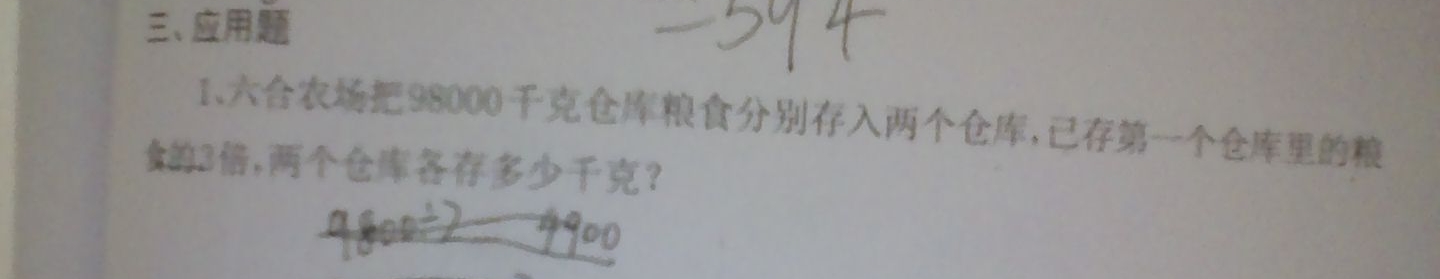 -594
三、应用题
1、六合农场把98000千克仓库粮食分别存入两个仓库,已存第一个仓库里的粮
食的3倍,两个仓库各存多少千克?
9800÷2 4900